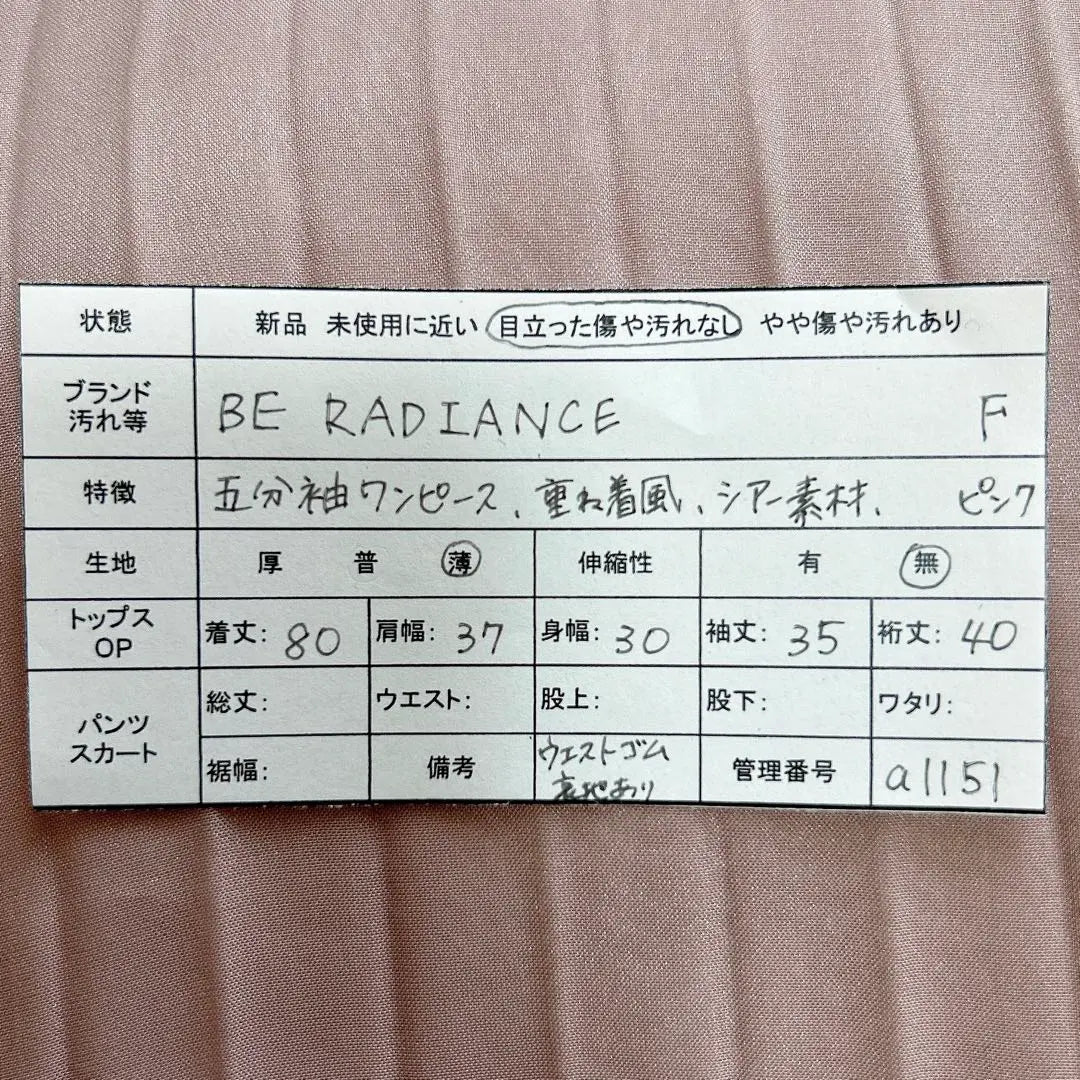 状態 新品 未使用に近い 目立った傷や汚れなし やや傷や汚れあり
ブランド
汚れ等 BE RADIANCE F
特徴 五分袖ワンピース、重ね着風、シアー素材、 ピンク
生地 厚 普 薄 伸縮性 有 無
トップス
OP 着丈: 80 肩幅: 37 身幅: 30 袖丈: 35 裄丈: 40
パンツ
スカート 総丈: ウエスト: 股上: 股下: ワタリ:
裾幅: 備考 ウエストゴム
裏地あり 管理番号 a1151